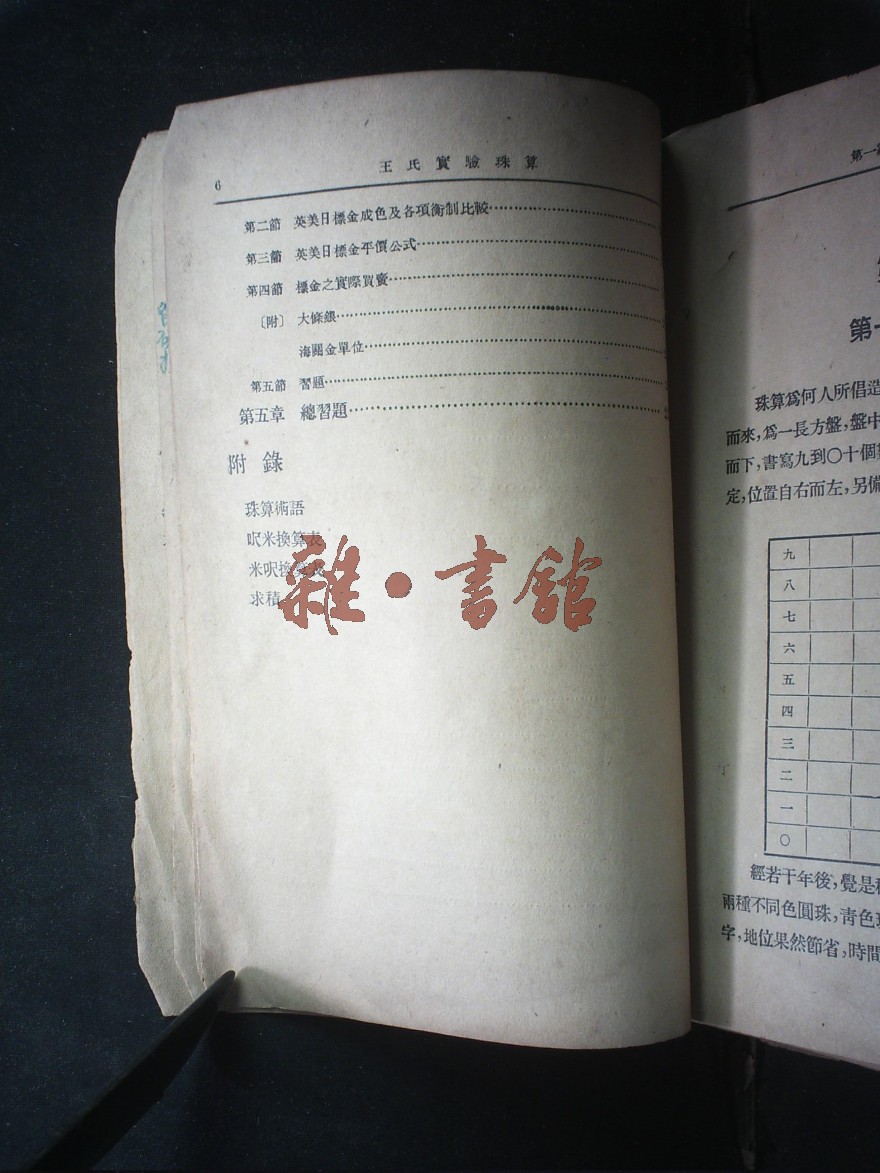 6
王氏實驗珠算
第二節 英美日標金成色及各項衡制比較
第三節 英美日標金平價公式
第四節 標金之實際買賣
〔附〕 大條銀
海關金單位
第五節 習題
第五章 總習題
附錄
珠算術語
呎米換算表
米呎換算表
求積
雜·書館
第一
第一
珠算爲何人所倡造
而來，爲一長方盤，盤中
而下，書寫九到〇十個
定，位置自右而左，另備
九
八
七
六
五
四
三
二
一
〇
經若干年後，覺是
兩種不同色圓珠，靑色
字，地位果然節省，時間